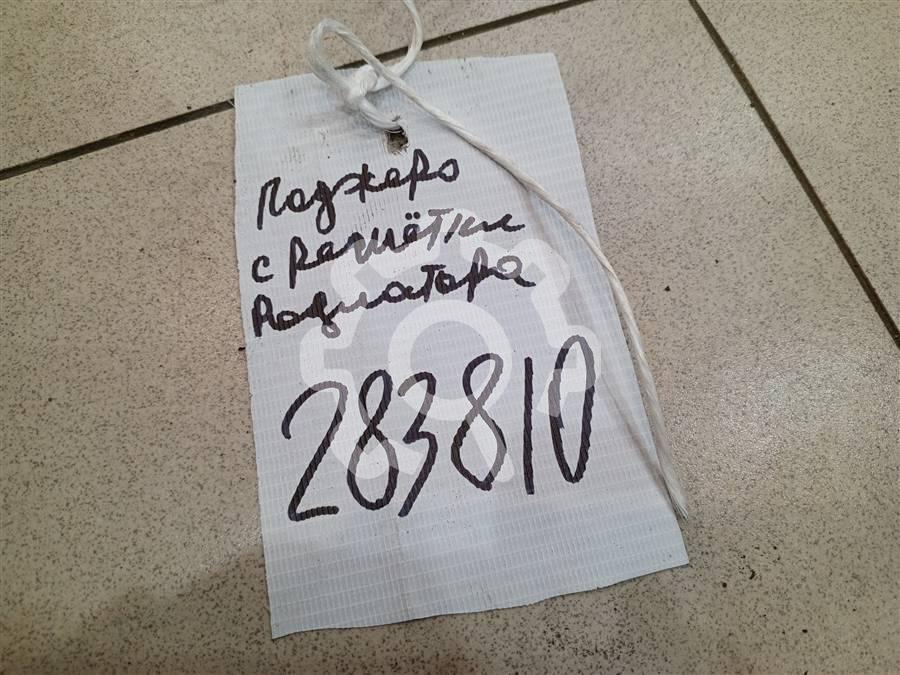 Паджеро
с решётки
Радиатора
283810